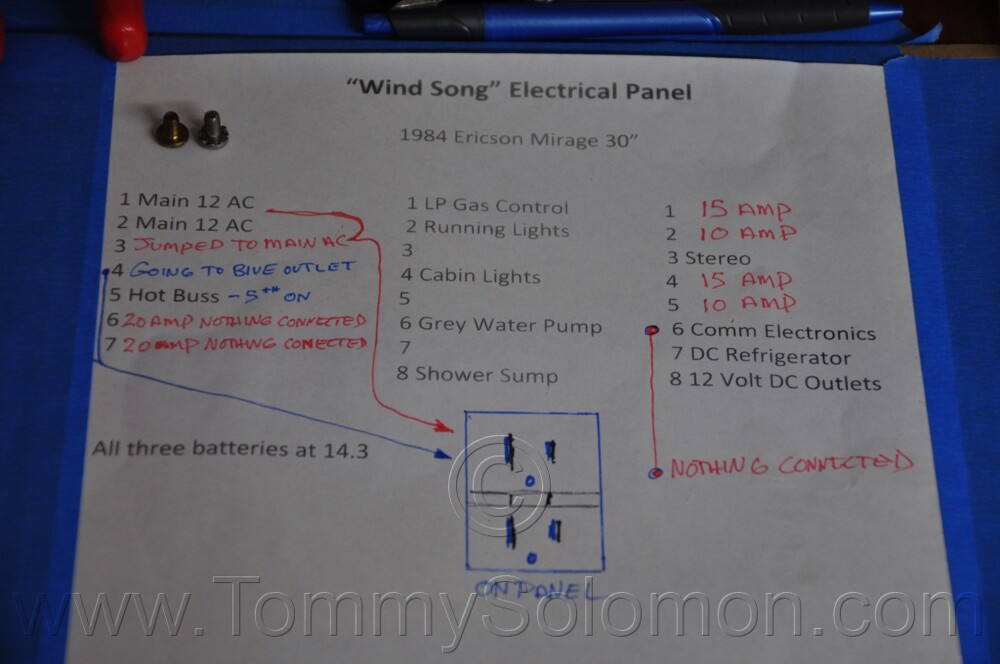 “Wind Song” Electrical Panel
1984 Ericson Mirage 30”
1 Main 12 AC
2 Main 12 AC
3 JUMPED TO MAIN AC
4 GOING TO BLUE OUTLET
5 Hot Buss - 5** ON
6 20 AMP NOTHING CONNECTED
7 20 AMP NOTHING CONNECTED
All three batteries at 14.3
1 LP Gas Control
2 Running Lights
3
4 Cabin Lights
5
6 Grey Water Pump
7
8 Shower Sump
1 15 AMP
2 10 AMP
3 Stereo
4 15 AMP
5 10 AMP
6 Comm Electronics
7 DC Refrigerator
8 12 Volt DC Outlets
NOTHING CONNECTED
ON PANEL
©
www.TommySolomon.com